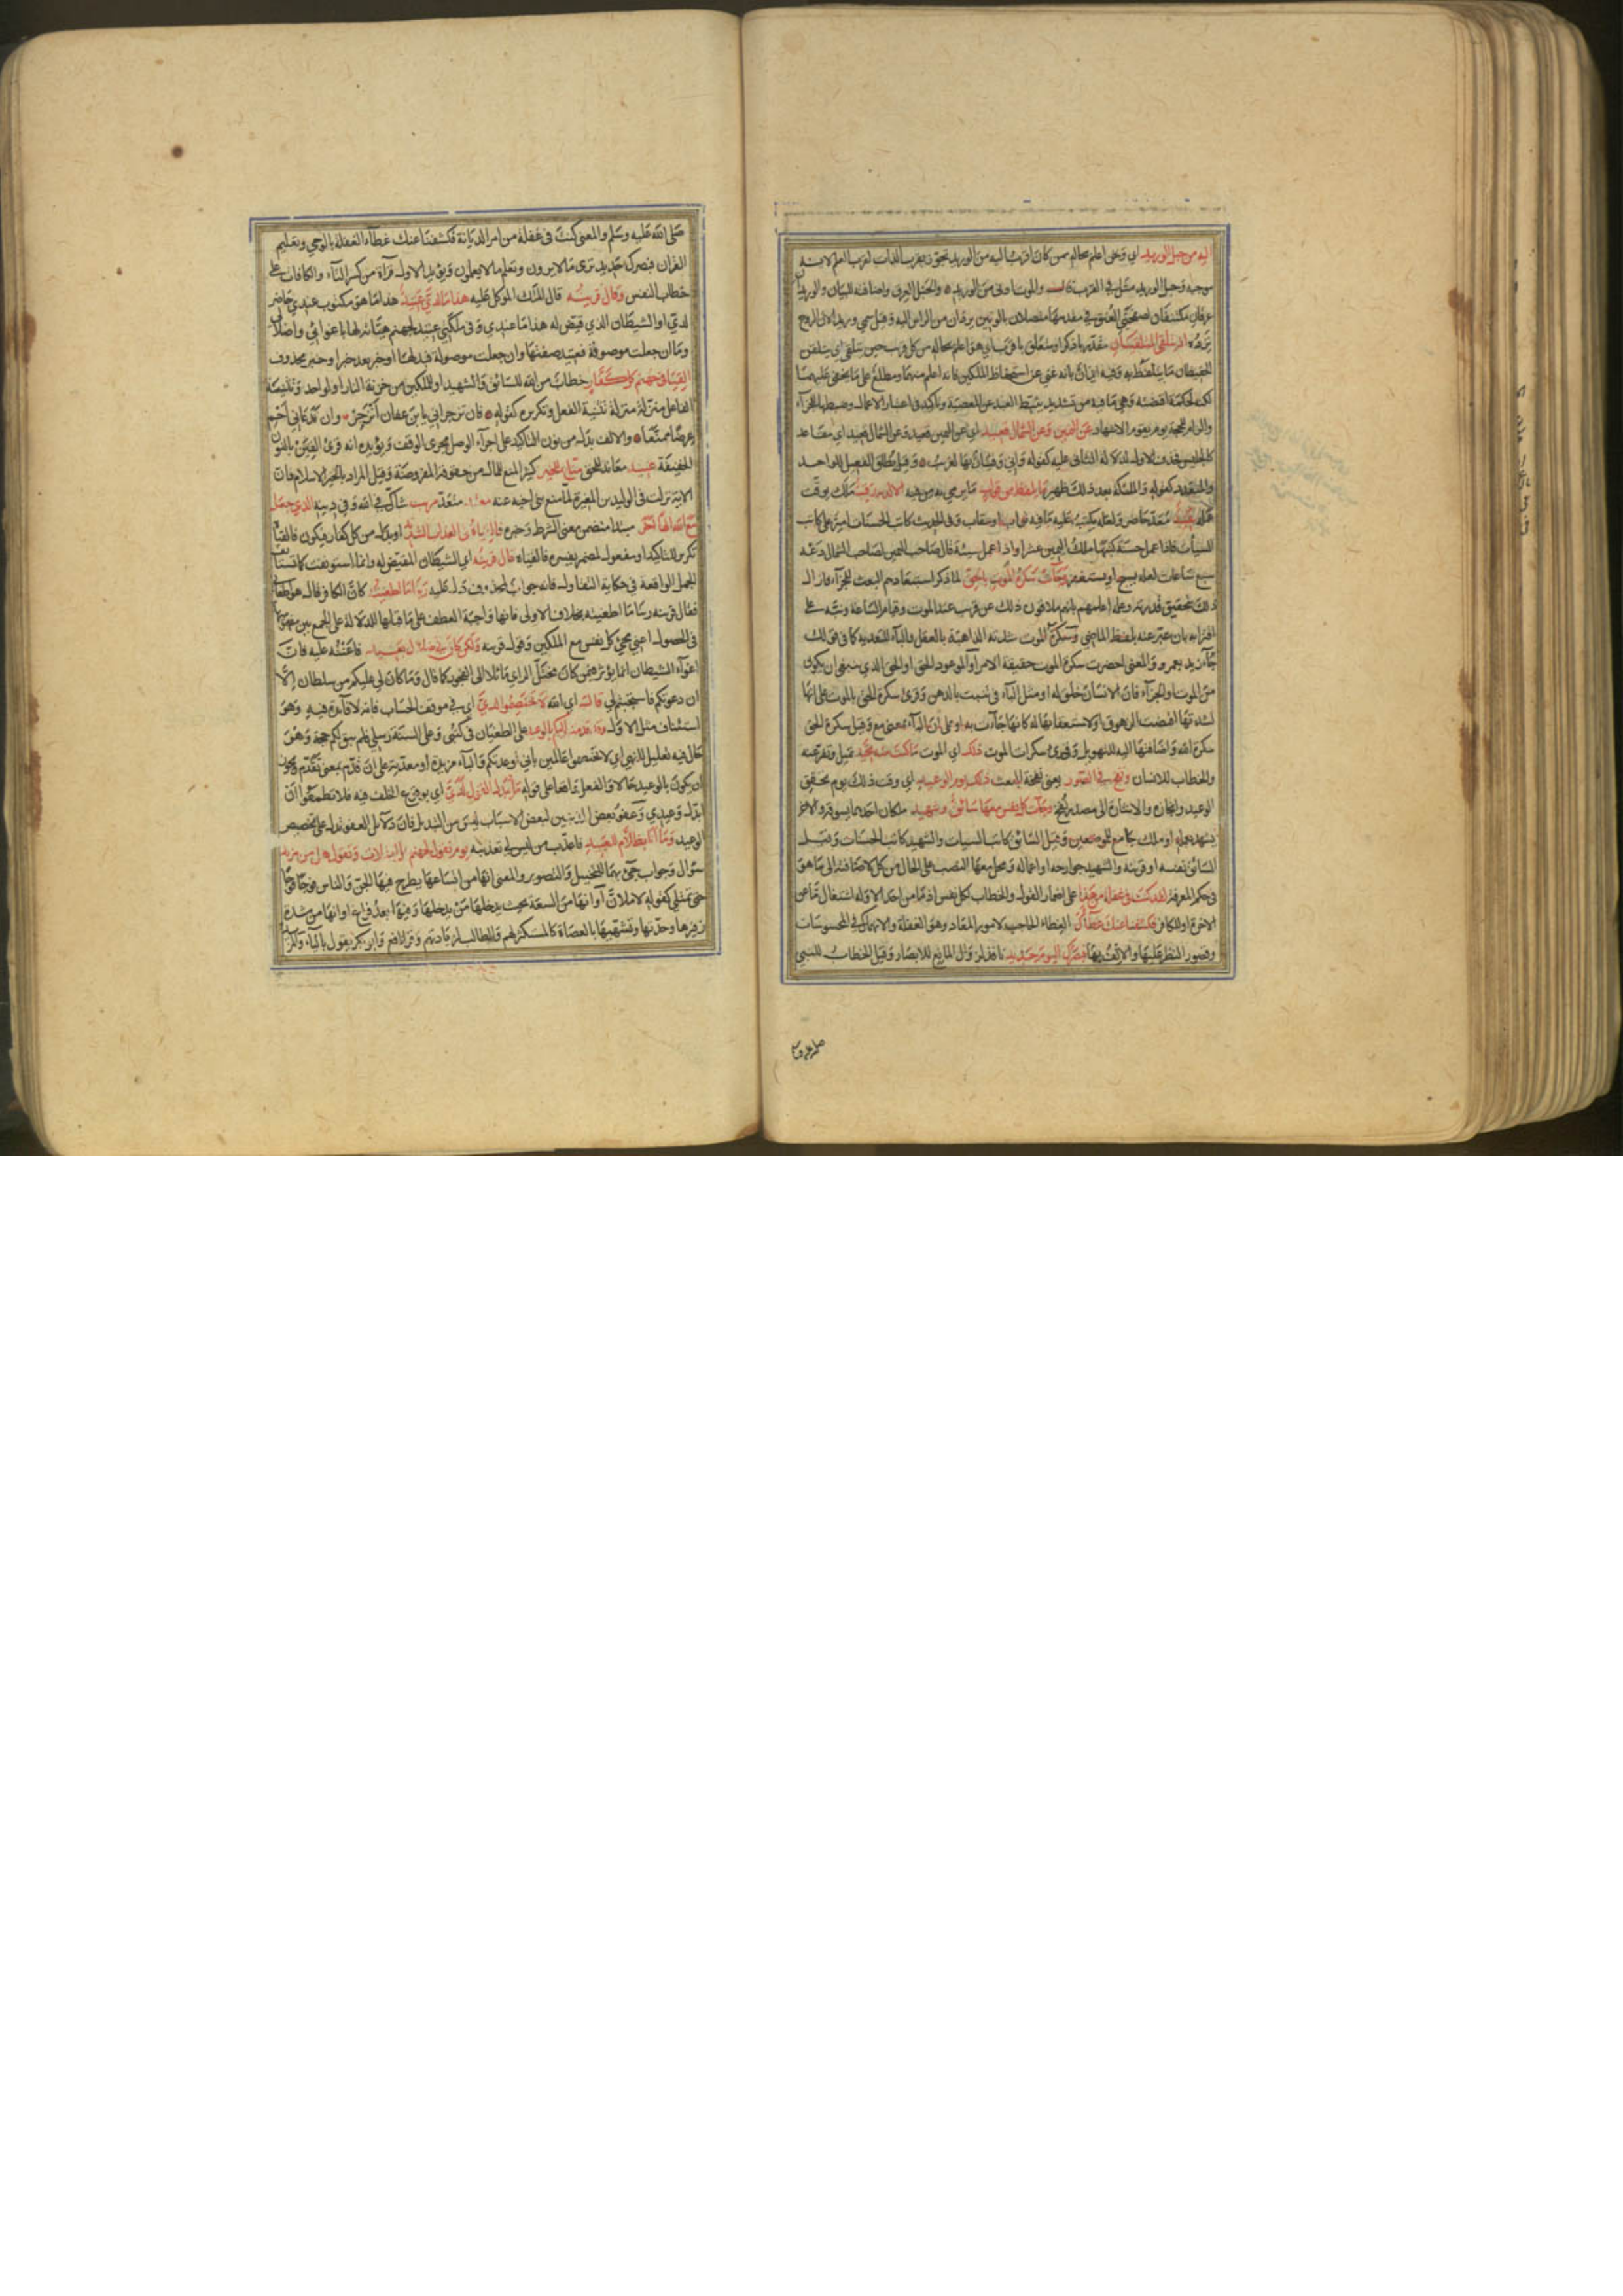 اليه من حبل الوريد اي ونحن اعلم بحاله ممن كان اقرب اليه من الوريد تجوز بقرب الذات لقرب العلم لانه
موجبه وحبل الوريد مثل في القرب قال والموت ادنى من الوريد والحبل العرق واضافته للبيان والوريدان
عرقان مكتنفان بصفحتي العنق في مقدمها متصلان بالوتين يردان من الراس اليه وقيل سمي وريدا لان الروح
ترده اذ يتلقى المتلقيان مقدر باذكر او متعلق باقرب اي هو اعلم بحاله من كل قريب حين يتلقى اي يتلقن
الحفيظان ما يتلفظ به وفيه ايذان بانه غني عن استحفاظ الملكين فانه اعلم منهما ومطلع على ما يخفى عليهما
لكنه لحكمة اقتضته وهي ما فيه من تشديد يثبط العبد عن المعصية وتاكيد في اعتبار الاعمال وضبطها للجزآء
والزام للحجة يوم يقوم الاشهاد عن اليمين وعن الشمال قعيد اي عن اليمين قعيد وعن الشمال قعيد اي مقاعد
كالجليس فحذف الاول لدلالة الثاني عليه كقوله فاني وقيار بها لغريب وقيل يطلق الفعيل للواحد
والمتعدد كقوله والملئكة بعد ذلك ظهير ما يلفظ من قول ما يرمي به من فيه الا لديه رقيب ملك يرقب
عمله عتيد معد حاضر ولعله يكتب عليه ما فيه ثواب او عقاب وفي الحديث كاتب الحسنات امير على كاتب
السيأت فاذا عمل حسنة كتبها ملك اليمين عشرا واذا عمل سيئة قال صاحب اليمين لصاحب الشمال دعه
سبع ساعات لعله يسبح او يستغفر وجآت سكرة الموت بالحق لما ذكر استبعادهم البعث للجزآء وازال
ذلك بتحقيق قدرته وعلمه اعلمهم بانهم يلاقون ذلك عن قريب عند الموت وقيام الساعة ونبه على
اقترابه بان عبر عنه بلفظ الماضي وسكرة الموت شدته الذاهبة بالعقل والبآء للتعدية كما في قولك
جآء زيد بعمرو والمعنى احضرت سكرة الموت حقيقة الامر او الموعود الحق او الحق الذي ينبغي ان يكون
من الموت والجزآء فان الانسان خلق له او مثل البآء في تنبت بالدهن وقرئ سكرة الحق بالموت على انها
لشدتها اقتضت الزهوق او لاستعقابها له كانها جآءت به او على ان البآء بمعنى مع وقيل سكرة الحق
سكرة الله واضافتها اليه للتهويل وقرئ سكرات الموت ذلك اي الموت ما كنت منه تحيد تميل وتفر عنه
والخطاب للانسان ونفخ في الصور يعني نفخة البعث ذلك يوم الوعيد اي وقت ذلك يوم تحقق
الوعيد وانجازه والاشارة الى مصدر نفخ وجآت كل نفس معها سائق وشهيد ملكان احدهما يسوقه والاخر
يشهد بعمله او ملك جامع للوصفين وقيل السائق كاتب السيات والشهيد كاتب الحسنات وقيل
السائق نفسه او قرينه والشهيد جوارحه او اعماله ومحل معها النصب على الحال من كل لاضافته الى ما هو
في حكم المعرفة لقد كنت في غفلة من هذا على اضمار القول والخطاب لكل نفس اذ ما من احد الا وله اشتغال ما عن
الاخرة او للكافر فكشفنا عنك غطآك الغطاء الحاجب لامور المعاد وهو الغفلة والانهماك في المحسوسات
وقصور النظر عليها والالف بها فبصرك اليوم حديد نافذ لزوال المانع للابصار وقيل الخطاب للنبي
صلى الله عليه وسلم والمعنى كنت في غفلة من امر الديانة فكشفنا عنك غطآء الغفلة بالوحي وتعليم
القران فبصرك حديد ترى ما لا يرون وتعلم ما لا يعلمون ويؤيد الاول قرآة من كسر التآء والكافات على
خطاب النفس وقال قرينه قال الملك الموكل عليه هذا ما لدي عتيد هذا ما هو مكتوب عندي حاضر
لدي او الشيطان الذي قيض له هذا ما عندي وفي ملكتي عتيد لجهنم هيأته لها باغوائي واضلالي
وما ان جعلت موصوفة فعتيد صفتها وان جعلت موصولة فبدلها او خبر بعد خبر او خبر محذوف
القيا في جهنم كل كفار خطاب من الله للسائق والشهيد او للملكين من خزنة النار او لواحد وتثنية
الفاعل منزلة منزلة تثنية الفعل وتكريره كقوله فان تزجراني يا بن عفان انزجر وان تدعاني احم
عرضا ممنعا والالف بدل من نون التاكيد على اجرآء الوصل مجرى الوقف ويؤيده انه قرئ القين بالنون
الخفيفة عنيد معاند للحق مناع للخير كثير المنع للمال من حقوقه المفروضة وقيل المراد بالخير الاسلام فان
الاية نزلت في الوليد بن المغيرة لما منع بني اخيه عنه معتد متعد مريب شاك في الله وفي دينه الذي جعل
مع الله الها اخر مبتدا متضمن معنى الشرط وخبره فالقياه في العذاب الشديد او بدل من كل كفار فيكون فالقياه
تكرير للتاكيد او مفعول لمضمر يفسره فالقياه قال قرينه اي الشيطان المقيض له وانما استؤنفت كما تستأنف
الجمل الواقعة في حكاية التقاول فانه جواب لمحذوف دل عليه ربنا ما اطغيته كان الكافر قال هو اطغاني
فقال قرينه ربنا ما اطغيته بخلاف الاولى فانها واجبة العطف على ما قبلها للدلالة على الجمع بين مفهوميهما
في الحصول اعني مجئ كل نفس مع الملكين وقول قرينه ولكن كان في ضلال بعيد فاعنته عليه فان
اغوآء الشيطان انما يؤثر فيمن كان مختل الراي مائلا الى الفجور كما قال وما كان لي عليكم من سلطان الا
ان دعوتكم فاستجبتم لي قال اي الله لا تختصموا لدي اي في موقف الحساب فانه لا فآئدة فيه وهو
استئناف مثل الاول وقد قدمت اليكم بالوعيد على الطغيان في كتبي وعلى السنة رسلي فلم يبق لكم حجة وهو
حال فيه تعليل للنهي اي لا تختصموا عالمين باني اوعدتكم والبآء مزيدة او معدية على ان قدم بمعنى تقدم ويجوز
ان يكون بالوعيد حالا والفعل واقعا على قوله ما يبدل القول لدي اي بوقوع الخلف فيه فلا تطمعوا ان
ابدل وعيدي وعفو بعض المذنبين لبعض الاسباب ليس من التبديل فان دلآئل العفو تدل على تخصيص
الوعيد وما انا بظلام للعبيد فاعذب من ليس لي تعذيبه يوم نقول لجهنم هل امتلات وتقول هل من مزيد
سؤال وجواب جئ بهما للتخييل والتصوير والمعنى انها من اتساعها يطرح فيها الجن والناس فوجا فوجا
حتى تمتلي كقوله لاملان او انها من السعة بحيث يدخلها من يدخلها وفيها بعد فراغ او انها من شدة
زفيرها وحدتها وتشبثها بالعصاة كالمستكثر لهم والطالب لزيادتهم وقرا نافع وابو بكر يقول باليآء